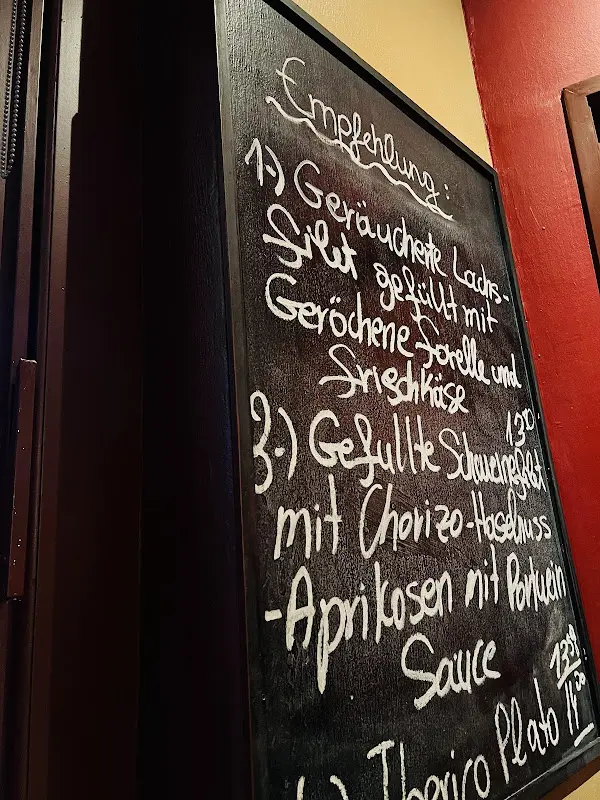 Empfehlung:
1.) Geräucherte Lachs-
filet gefüllt mit
Geröchene forelle und
frischkäse
13⁹⁰
3.) Gefüllte Schweinefilet
mit Chorizo-Haselnuss
-Aprikosen mit Portwein
Sauce
Iberico Plato